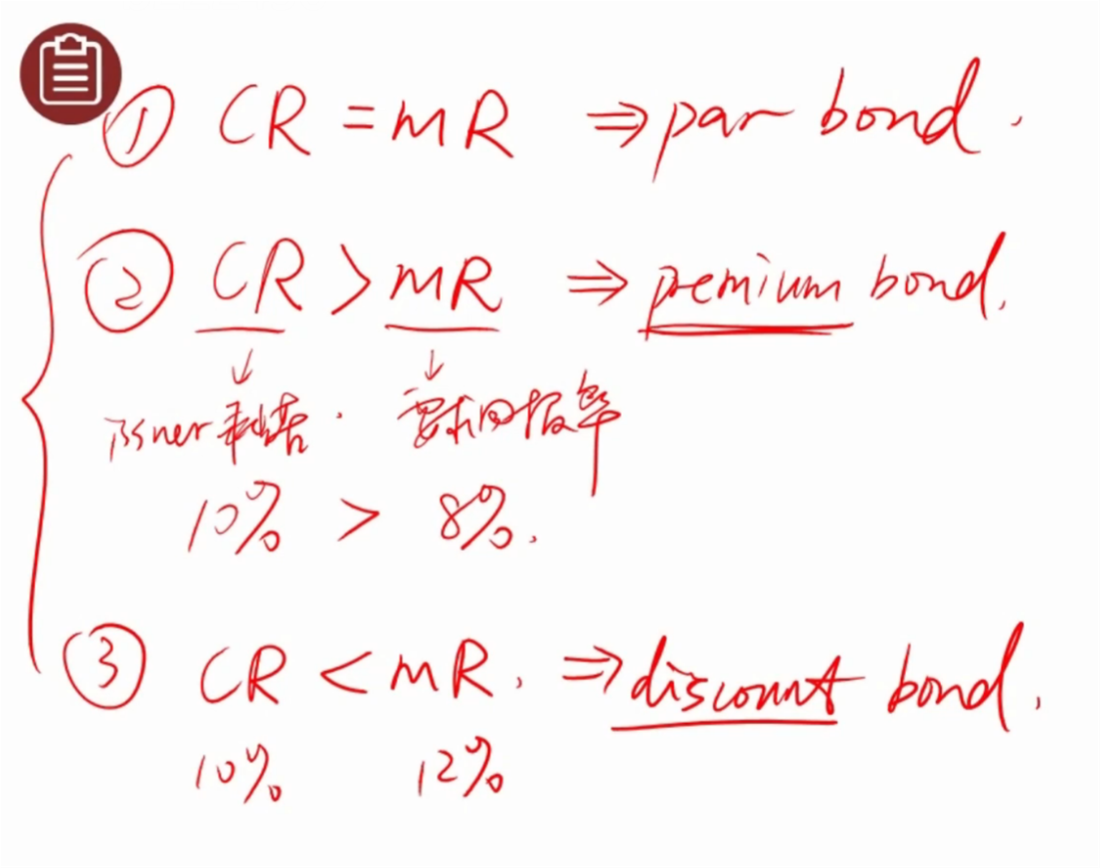 ① CR = MR ⇒ par bond.
② CR > MR ⇒ premium bond.
↓ ↓
issner 利息. 要求回报率
10% > 8%.
③ CR < MR. ⇒ discount bond.
10% 12%